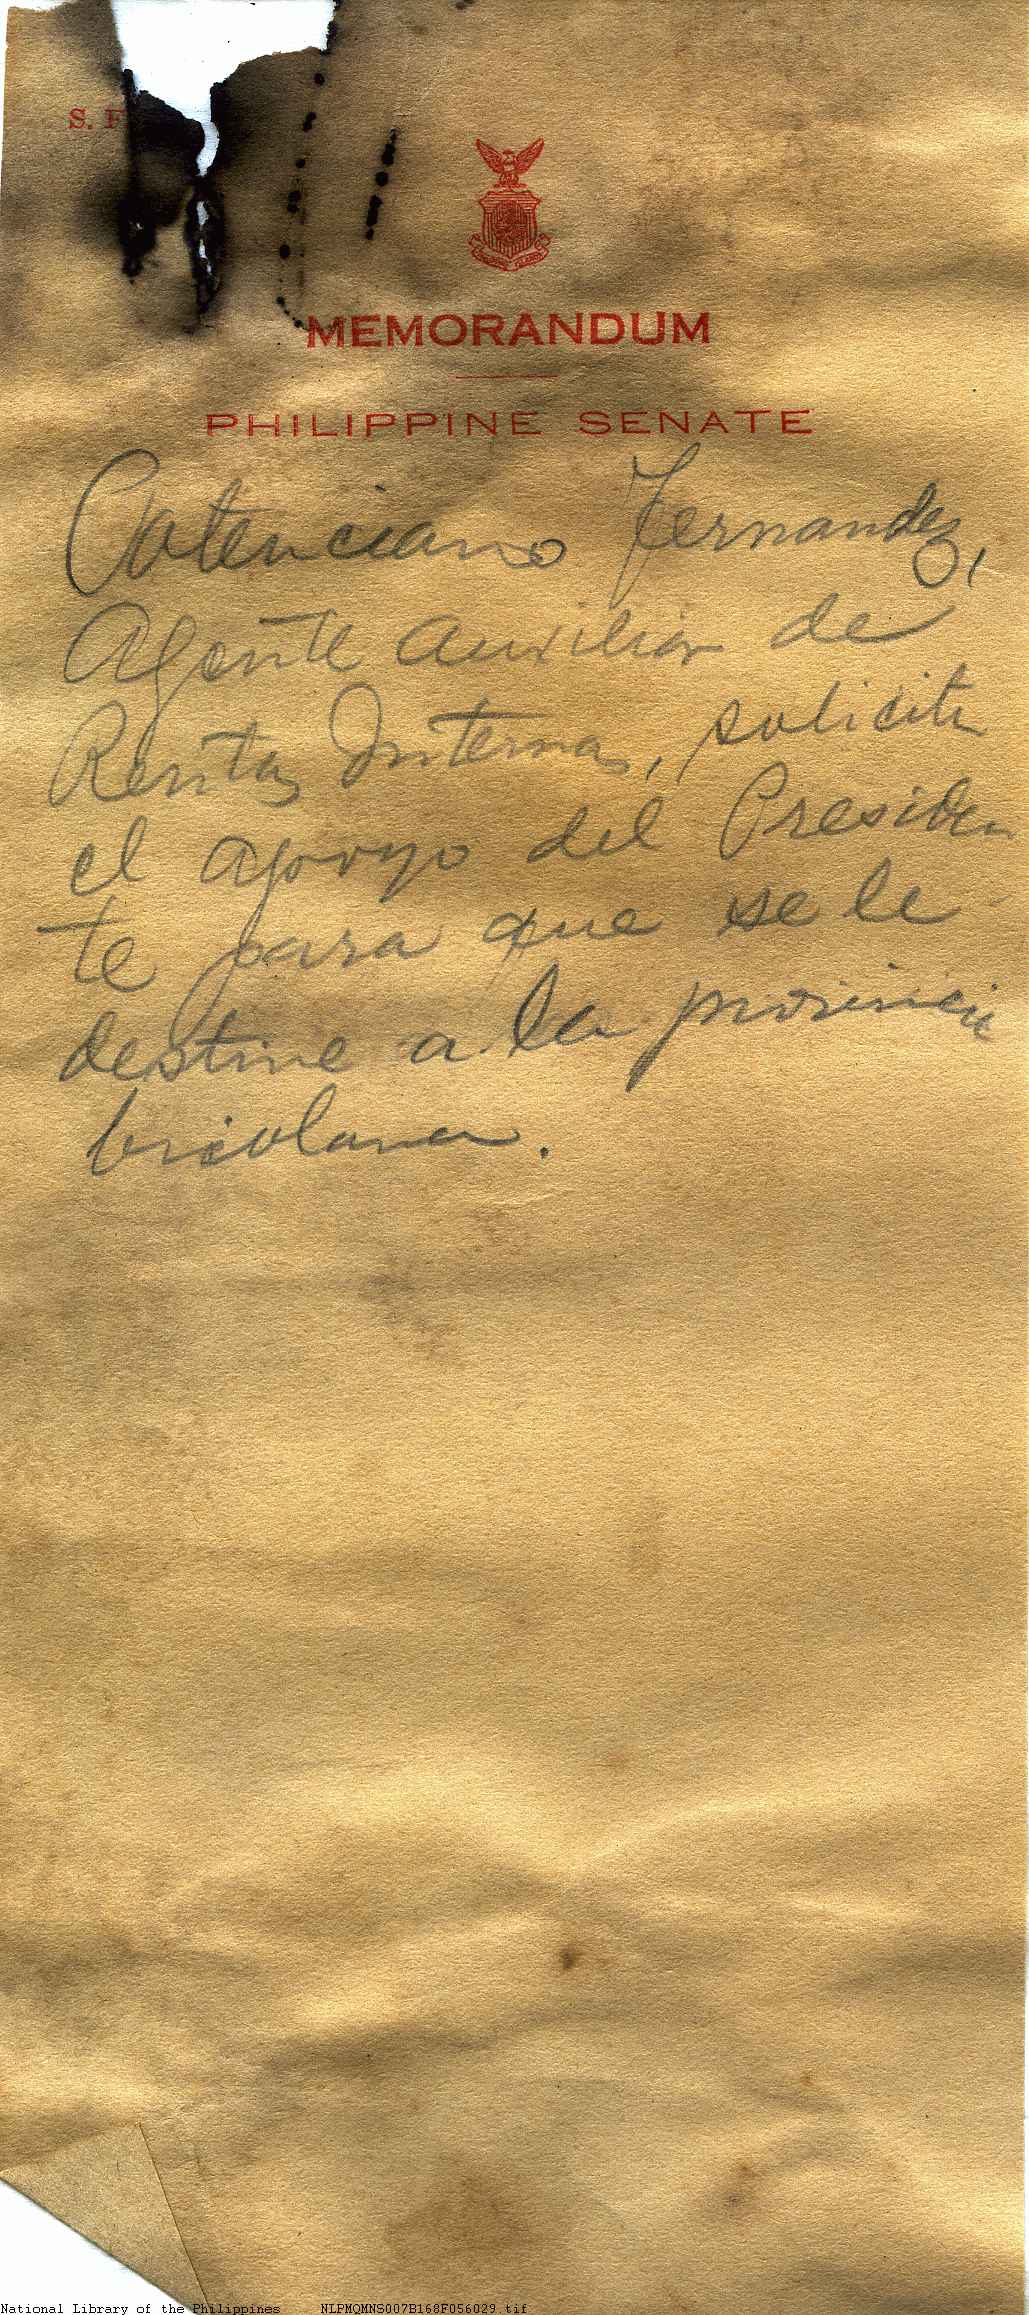 S. F
MEMORANDUM
PHILIPPINE SENATE
Potenciano Fernandez,
Agente Auxiliar de
Rentas Internas, solicita
el apoyo del Presiden
te para que se le
destine a la provincia
bicolana.
National Library of the Philippines NLPMQMNS007B168F056029.tif